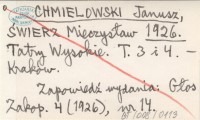 CHMIELOWSKI Janusz,
ŚWIERZ Mieczysław 1926.
Tatry Wysokie. T. 3 i 4. –
Kraków.
Zapowiedź wydania: Głos
Zakop. 4 (1926), nr 14.